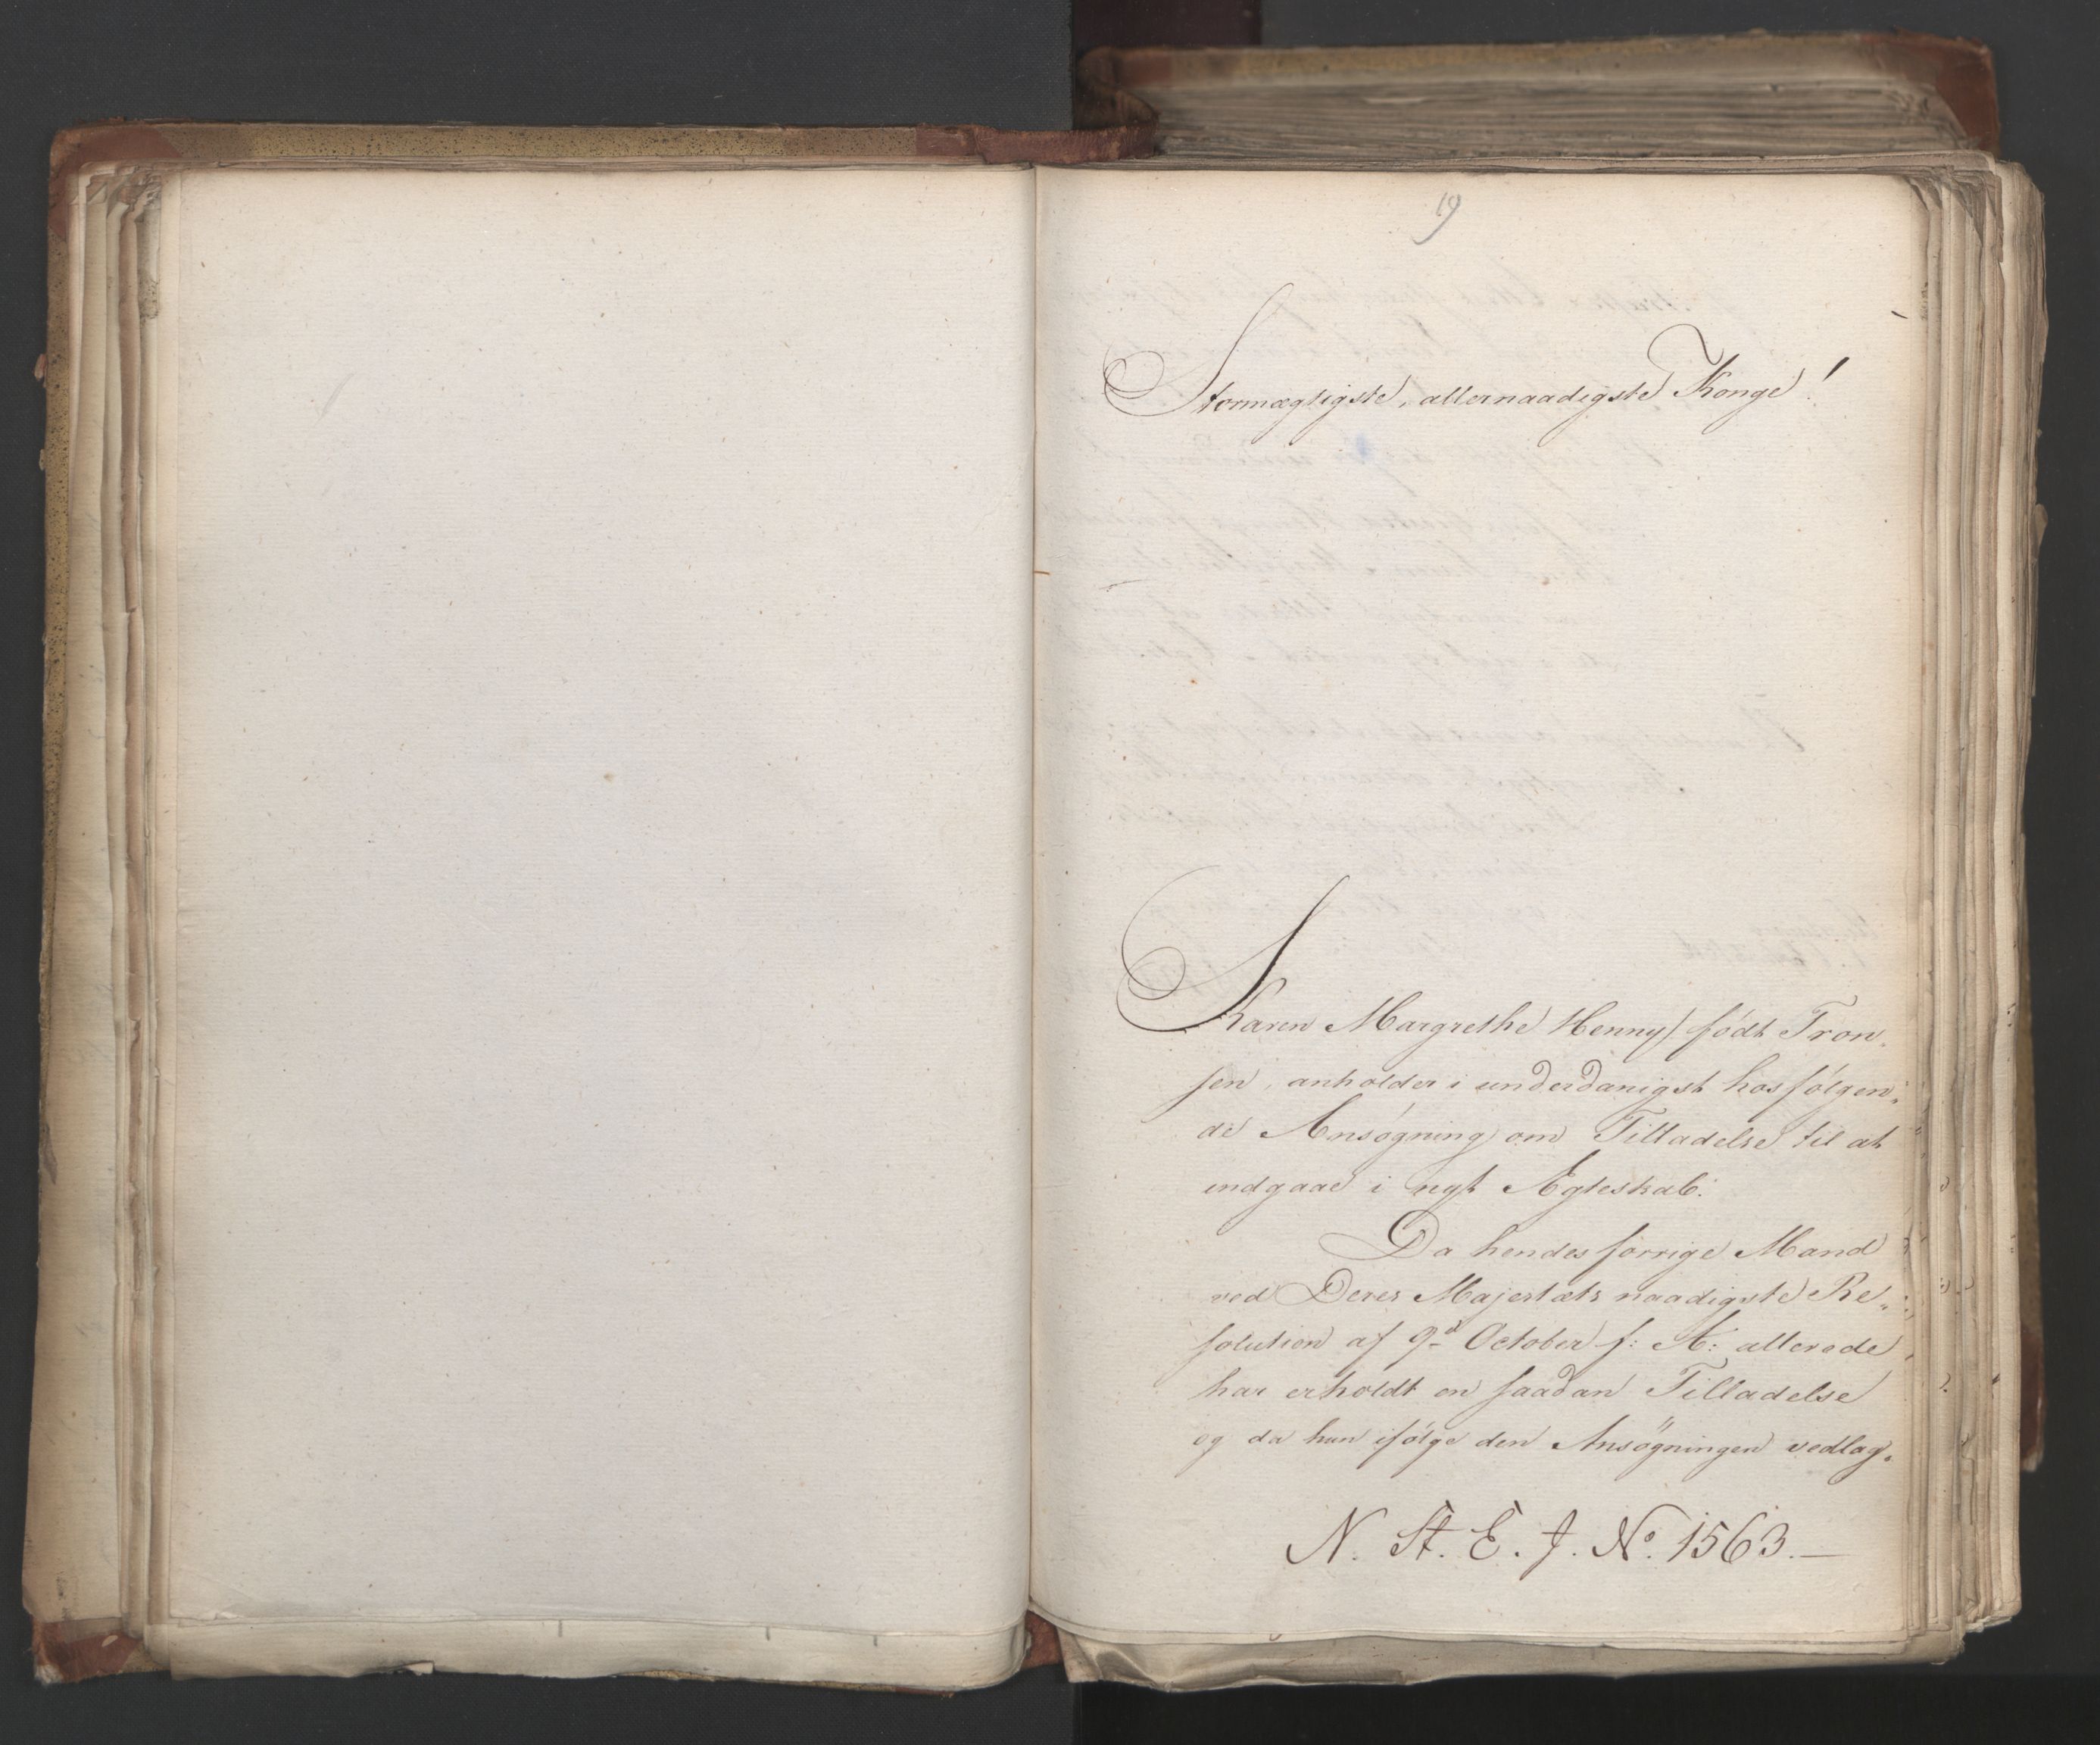 19
Stormægtigste, allernaadigste Konge!
Karen Margrethe Henny født Tron„
sen, anholder i underdanigst hosfølgen„
de Ansøgning om Tilladelse til at
indgaae i nyt Ægteskab.
Da hendes forrige Mand
ved Deres Majestæts naadigste Re„
solution af 9d October f: A: allerede
har erholdt en saadan Tilladelse
og da hun ifølge den Ansøgningen vedlag„
N. St. E. J. No. 1563.—